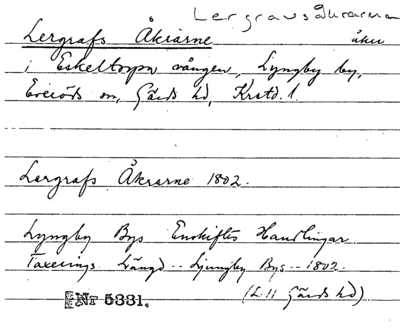 Lergravsåkrarna
Lergrafs Åkrarne åker
i Eskeltorpa vången, Lyngby by,
Everöds sn, Gärds hd, Krstd. l.
Lergrafs Åkrarne 1802.
Lyngby Bys Enskiftes Handlingar
Taxerings Längd -- Ljungby Bys -- 1802.
(L. 11 Gärds hd)
Nr 5331.